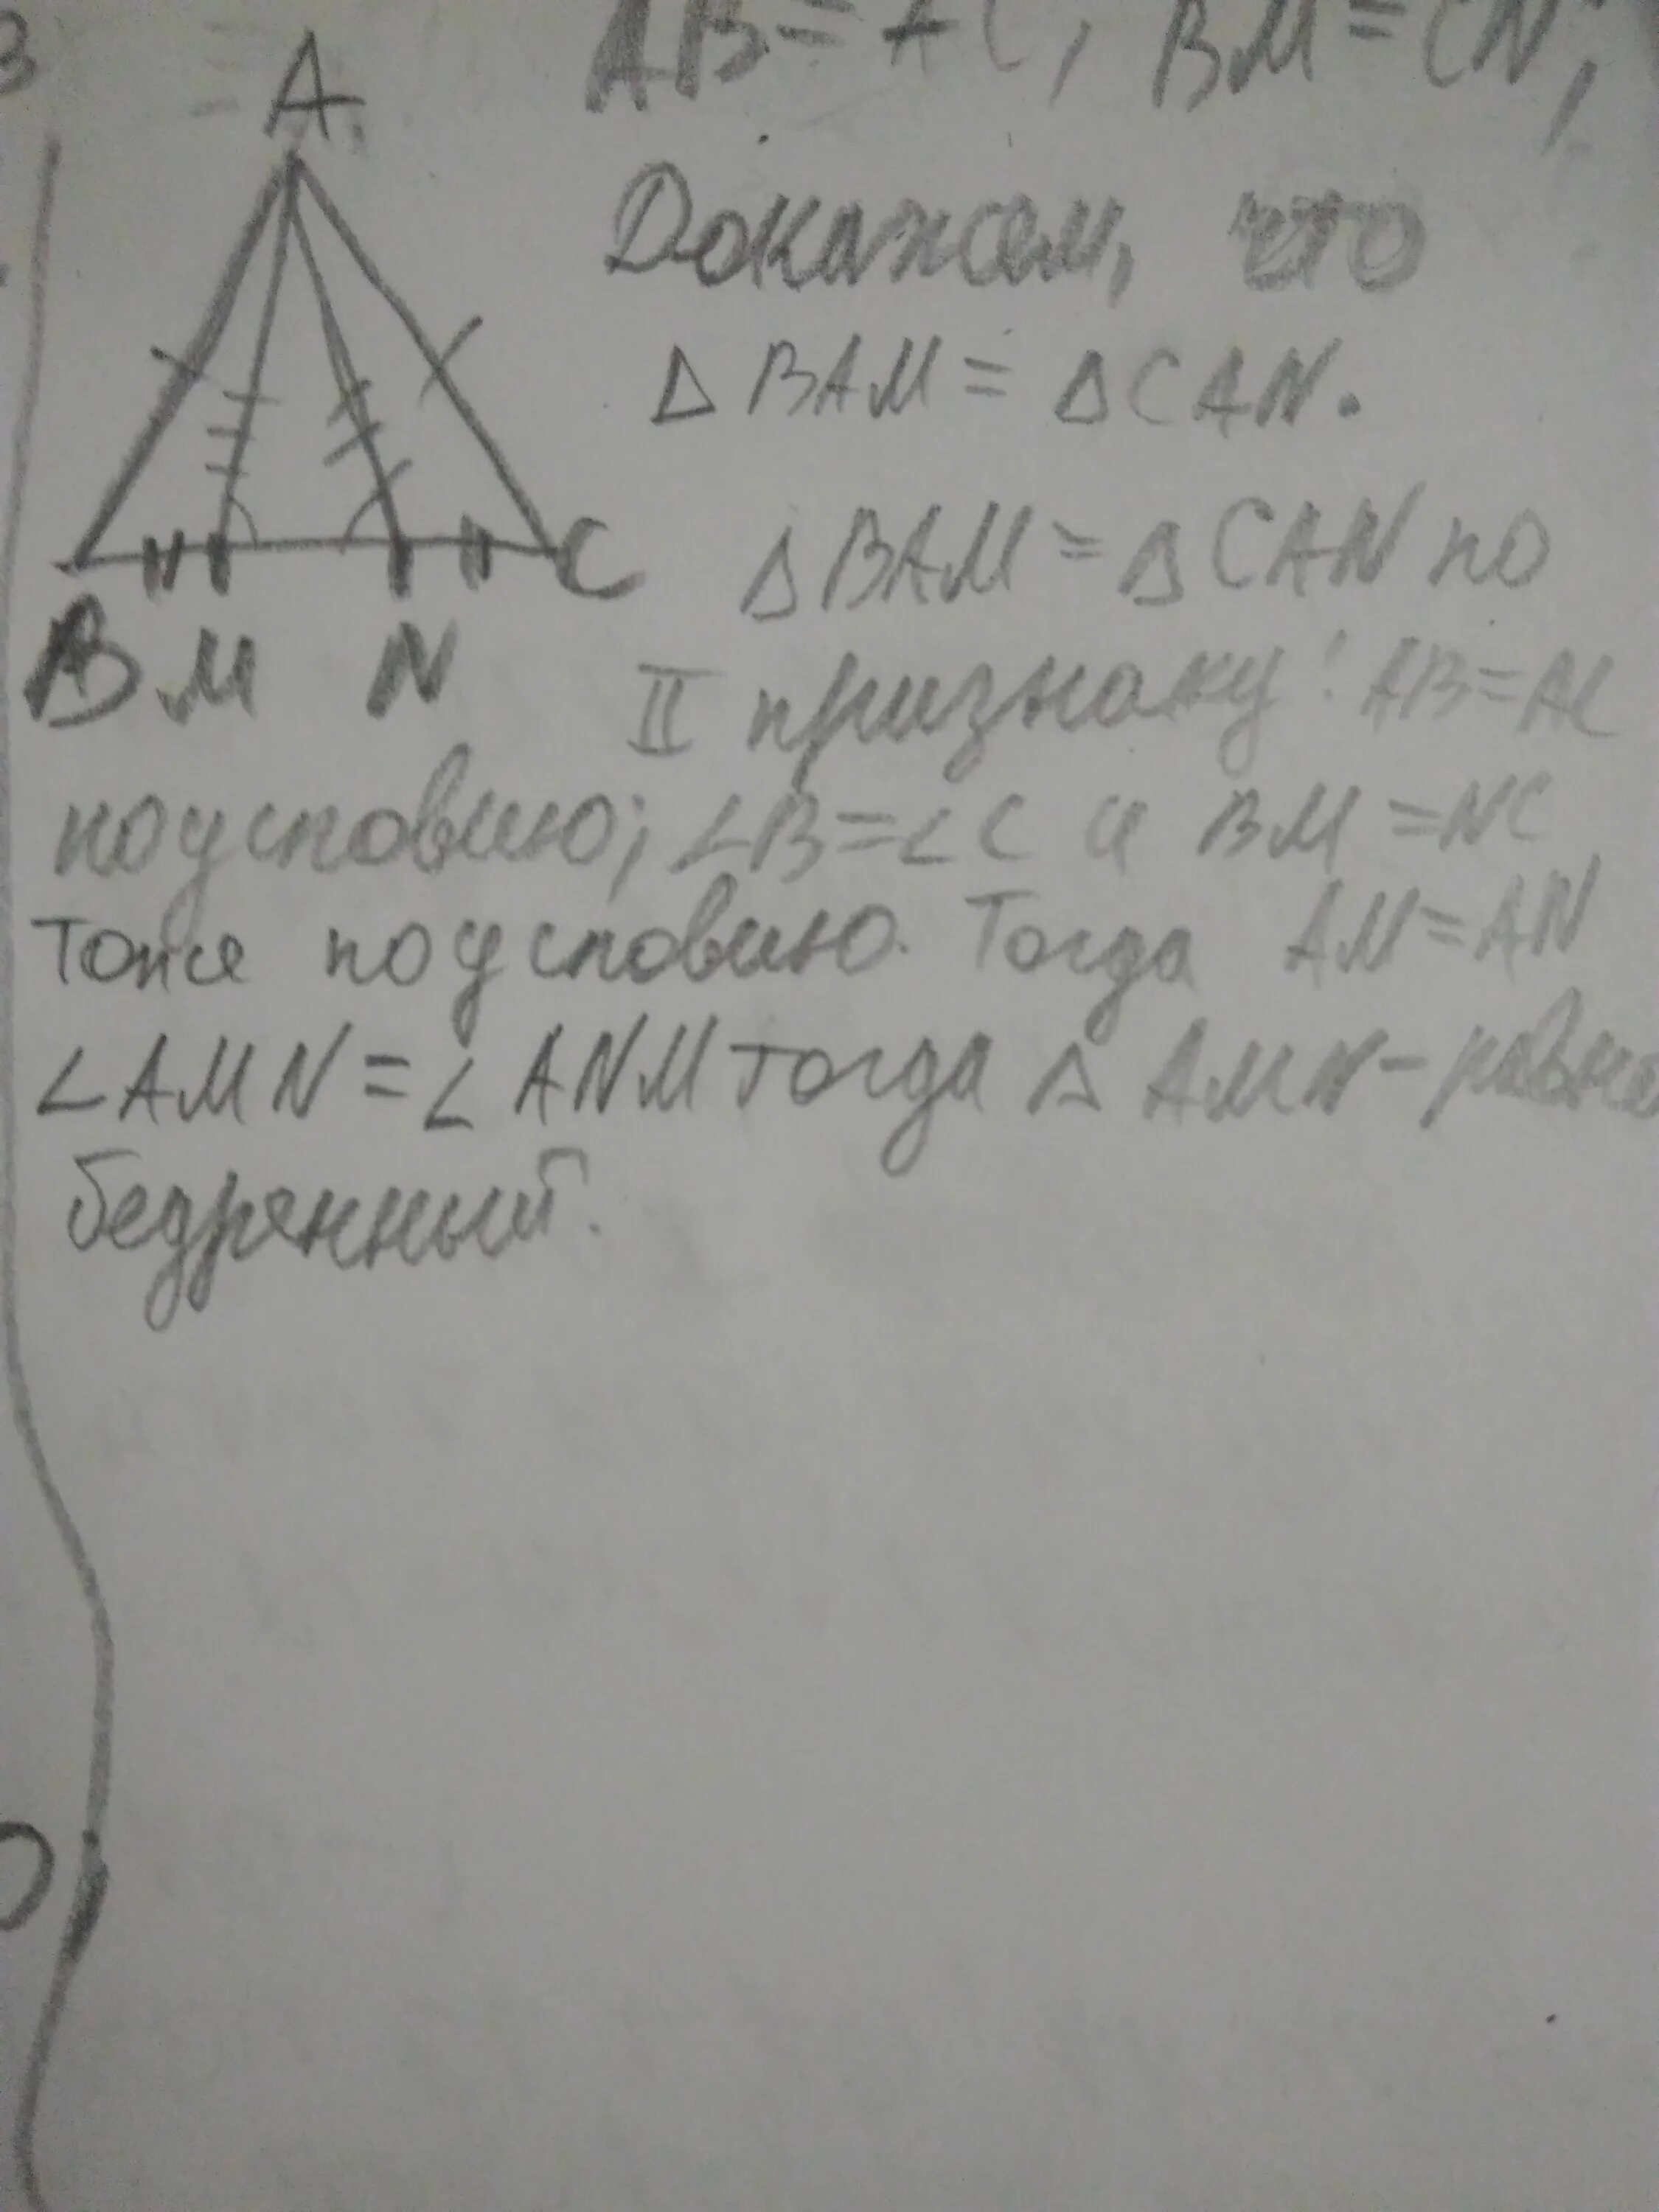 AB = AC, BM = CN,
A
Докажем, что
Δ BAM = Δ CAN.
Δ BAM = Δ CAN по
C
B M N
II признаку: AB = AC
по условию; ∠B = ∠C и BM = NC
тоже по условию. Тогда AM = AN
∠AMN = ∠ANM тогда Δ AMN - равно
бедренный.